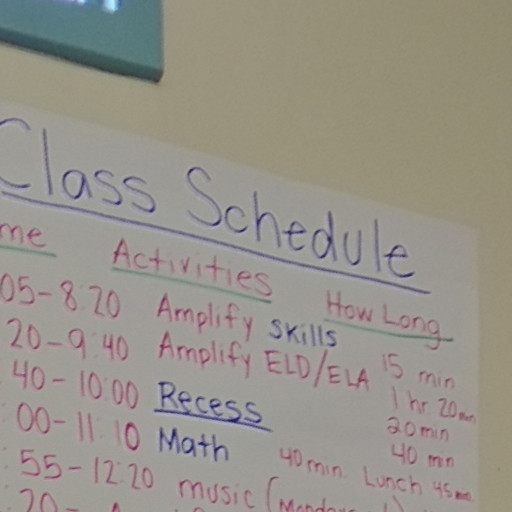 Class Schedule
me Activities How Long
05-8:20 Amplify Skills 15 min
20-9:40 Amplify ELD/ELA 1 hr 20min
40-10:00 Recess 20min
:00-11:10 Math 40 min
40min Lunch 45min
:55-12:20 music (Monday
:20-